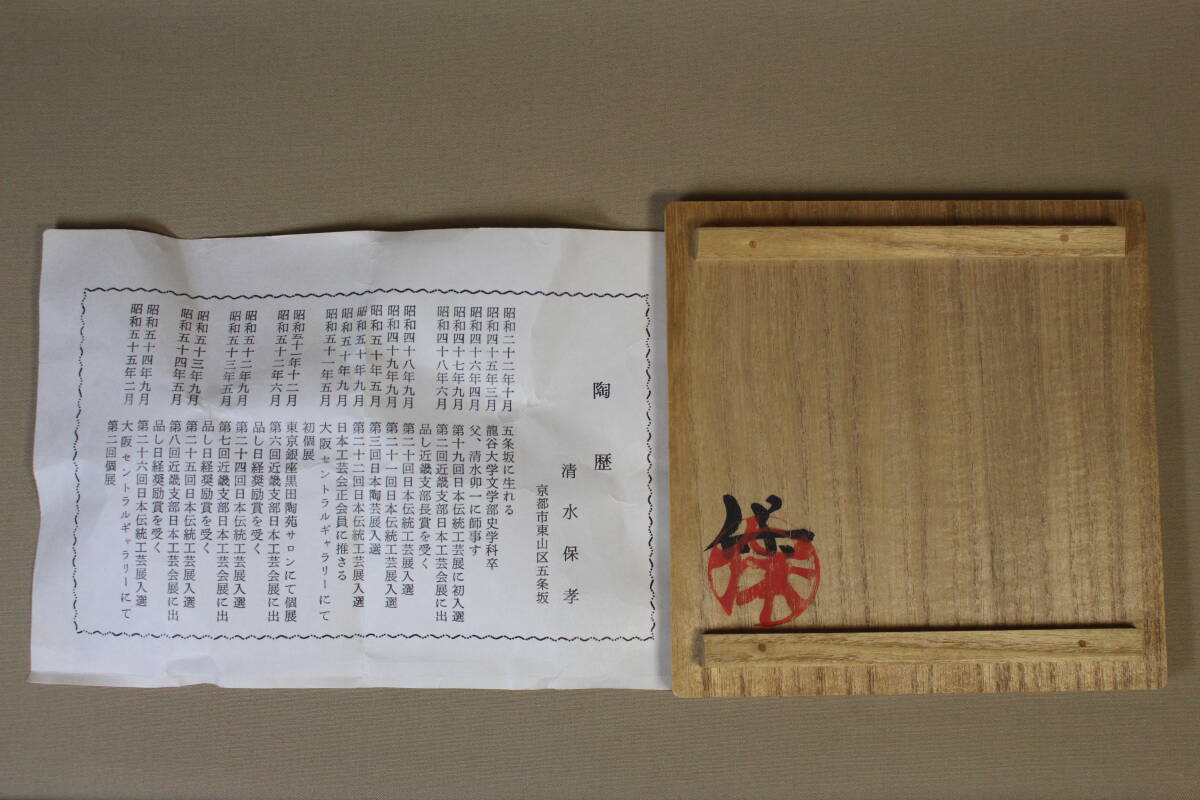 陶歴
清水保孝
京都市東山区五条坂
昭和二十二年十月 五条坂に生れる
昭和四十五年三月 龍谷大学文学部史学科卒
昭和四十六年四月 父、清水卯一に師事す
昭和四十七年九月 第十九回日本伝統工芸展に初入選
昭和四十八年六月 第二回近畿支部日本工芸会展に出
品し近畿支部長賞を受く
昭和四十八年九月 第二十回日本伝統工芸展入選
昭和四十九年九月 第二十一回日本伝統工芸展入選
昭和五十年五月 第三回日本陶芸展入選
昭和五十年九月 第二十二回日本伝統工芸展入選
昭和五十年九月 日本工芸会正会員に推さる
昭和五十一年五月 大阪セントラルギャラリーにて
初個展
昭和五十一年十二月 東京銀座黒田陶苑サロンにて個展
昭和五十二年六月 第六回近畿支部日本工芸会展に出
品し日経奨励賞を受く
昭和五十二年九月 第二十四回日本伝統工芸展入選
昭和五十三年五月 第七回近畿支部日本工芸会展に出
品し日経奨励賞を受く
昭和五十三年九月 第二十五回日本伝統工芸展入選
昭和五十四年五月 第八回近畿支部日本工芸会展に出
品し日経奨励賞を受く
昭和五十四年九月 第二十六回日本伝統工芸展入選
昭和五十五年二月 大阪セントラルギャラリーにて
第二回個展
保
保